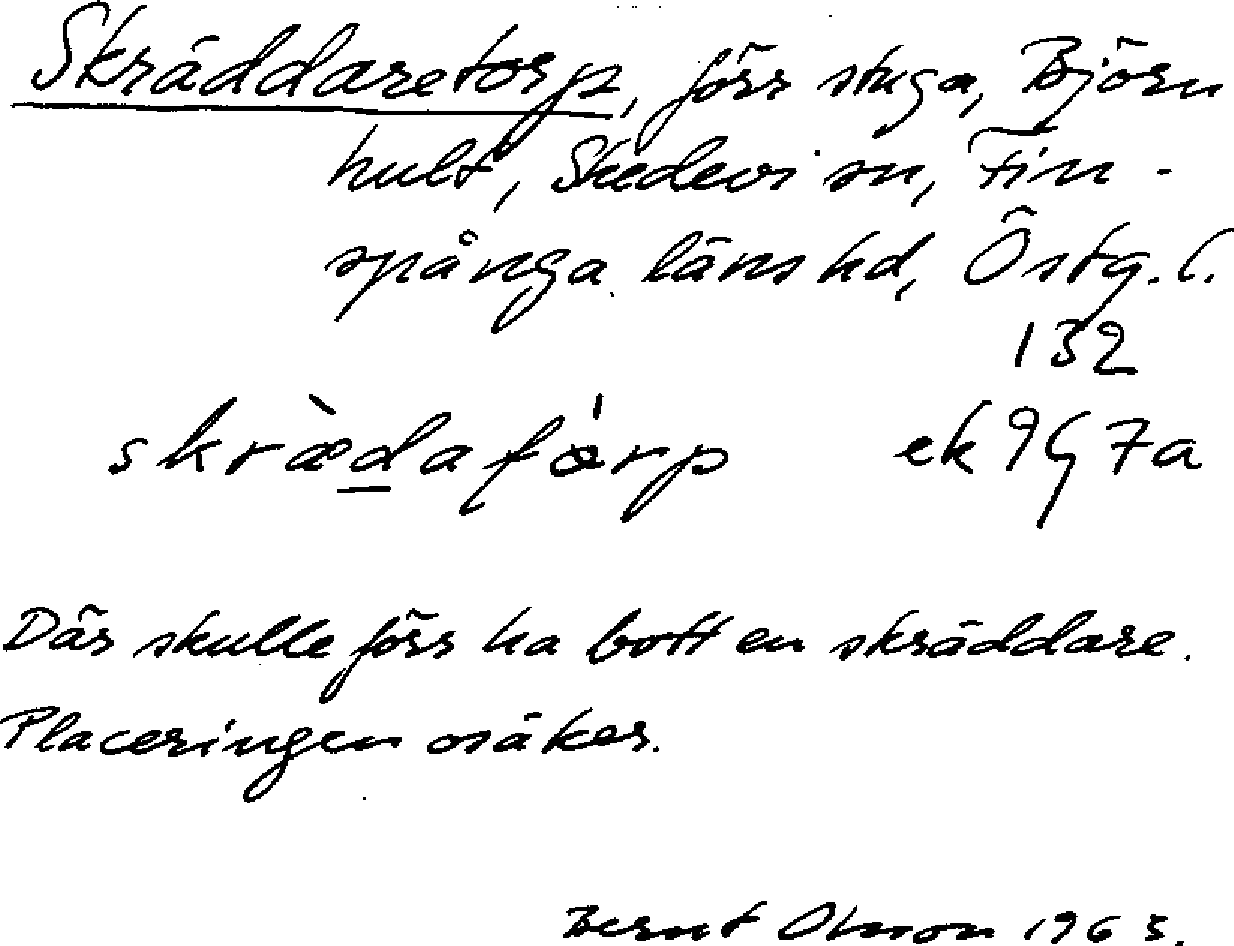 Skräddaretorp, förr stuga, Björn
hult, Skedevi sn, Fin-
spånga läns hd, Östg. l.
132
skræ̀datórp ek 9G7a
Där skulle förr ha bott en skräddare.
Placeringen osäker.
Bernt Olsson 1963.